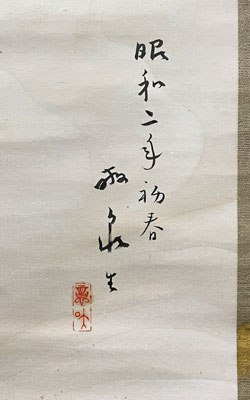 昭和二年初春
生